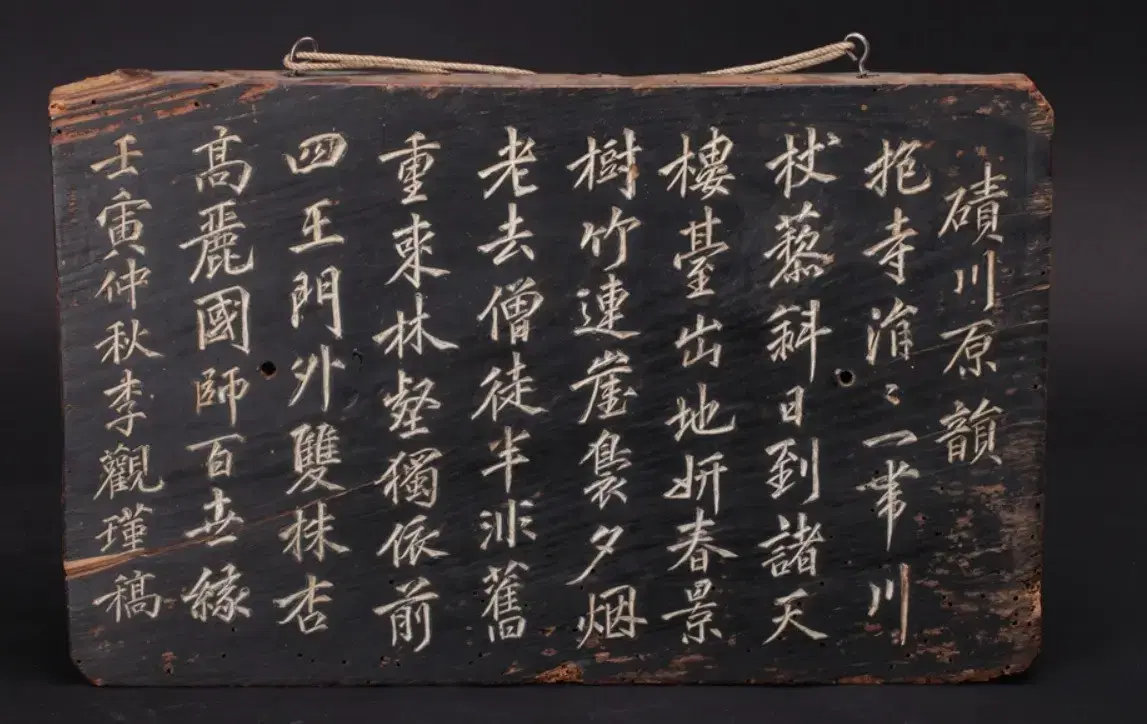 磧川原韻
抱寺湝〻一帶川
杖藜斜日到諸天
樓臺出地妍春景
樹竹連崖裊夕烟
老去僧徒半非舊
重來林壑獨依前
四王門外雙株杏
高麗國師百世緣
壬寅仲秋李觀瑾稿